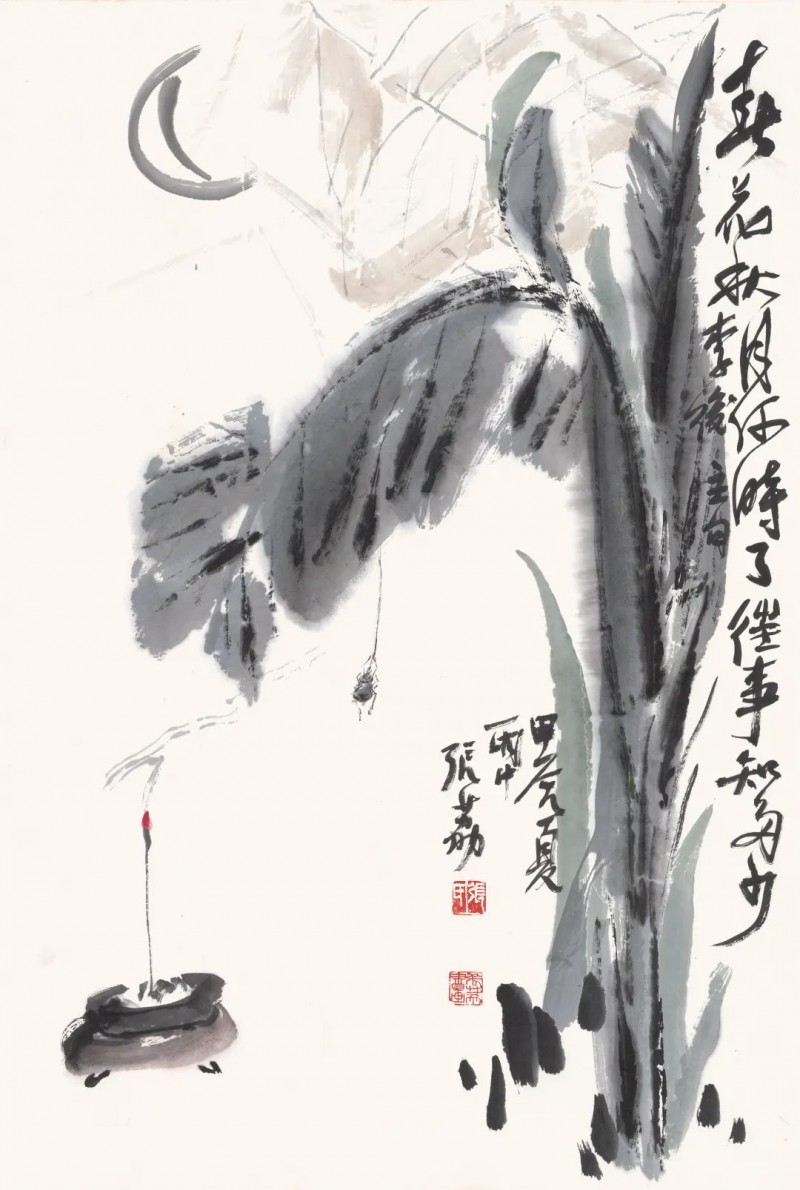 春花秋月何時了往事知多少
李後主句
甲辰夏
雨中
張荔